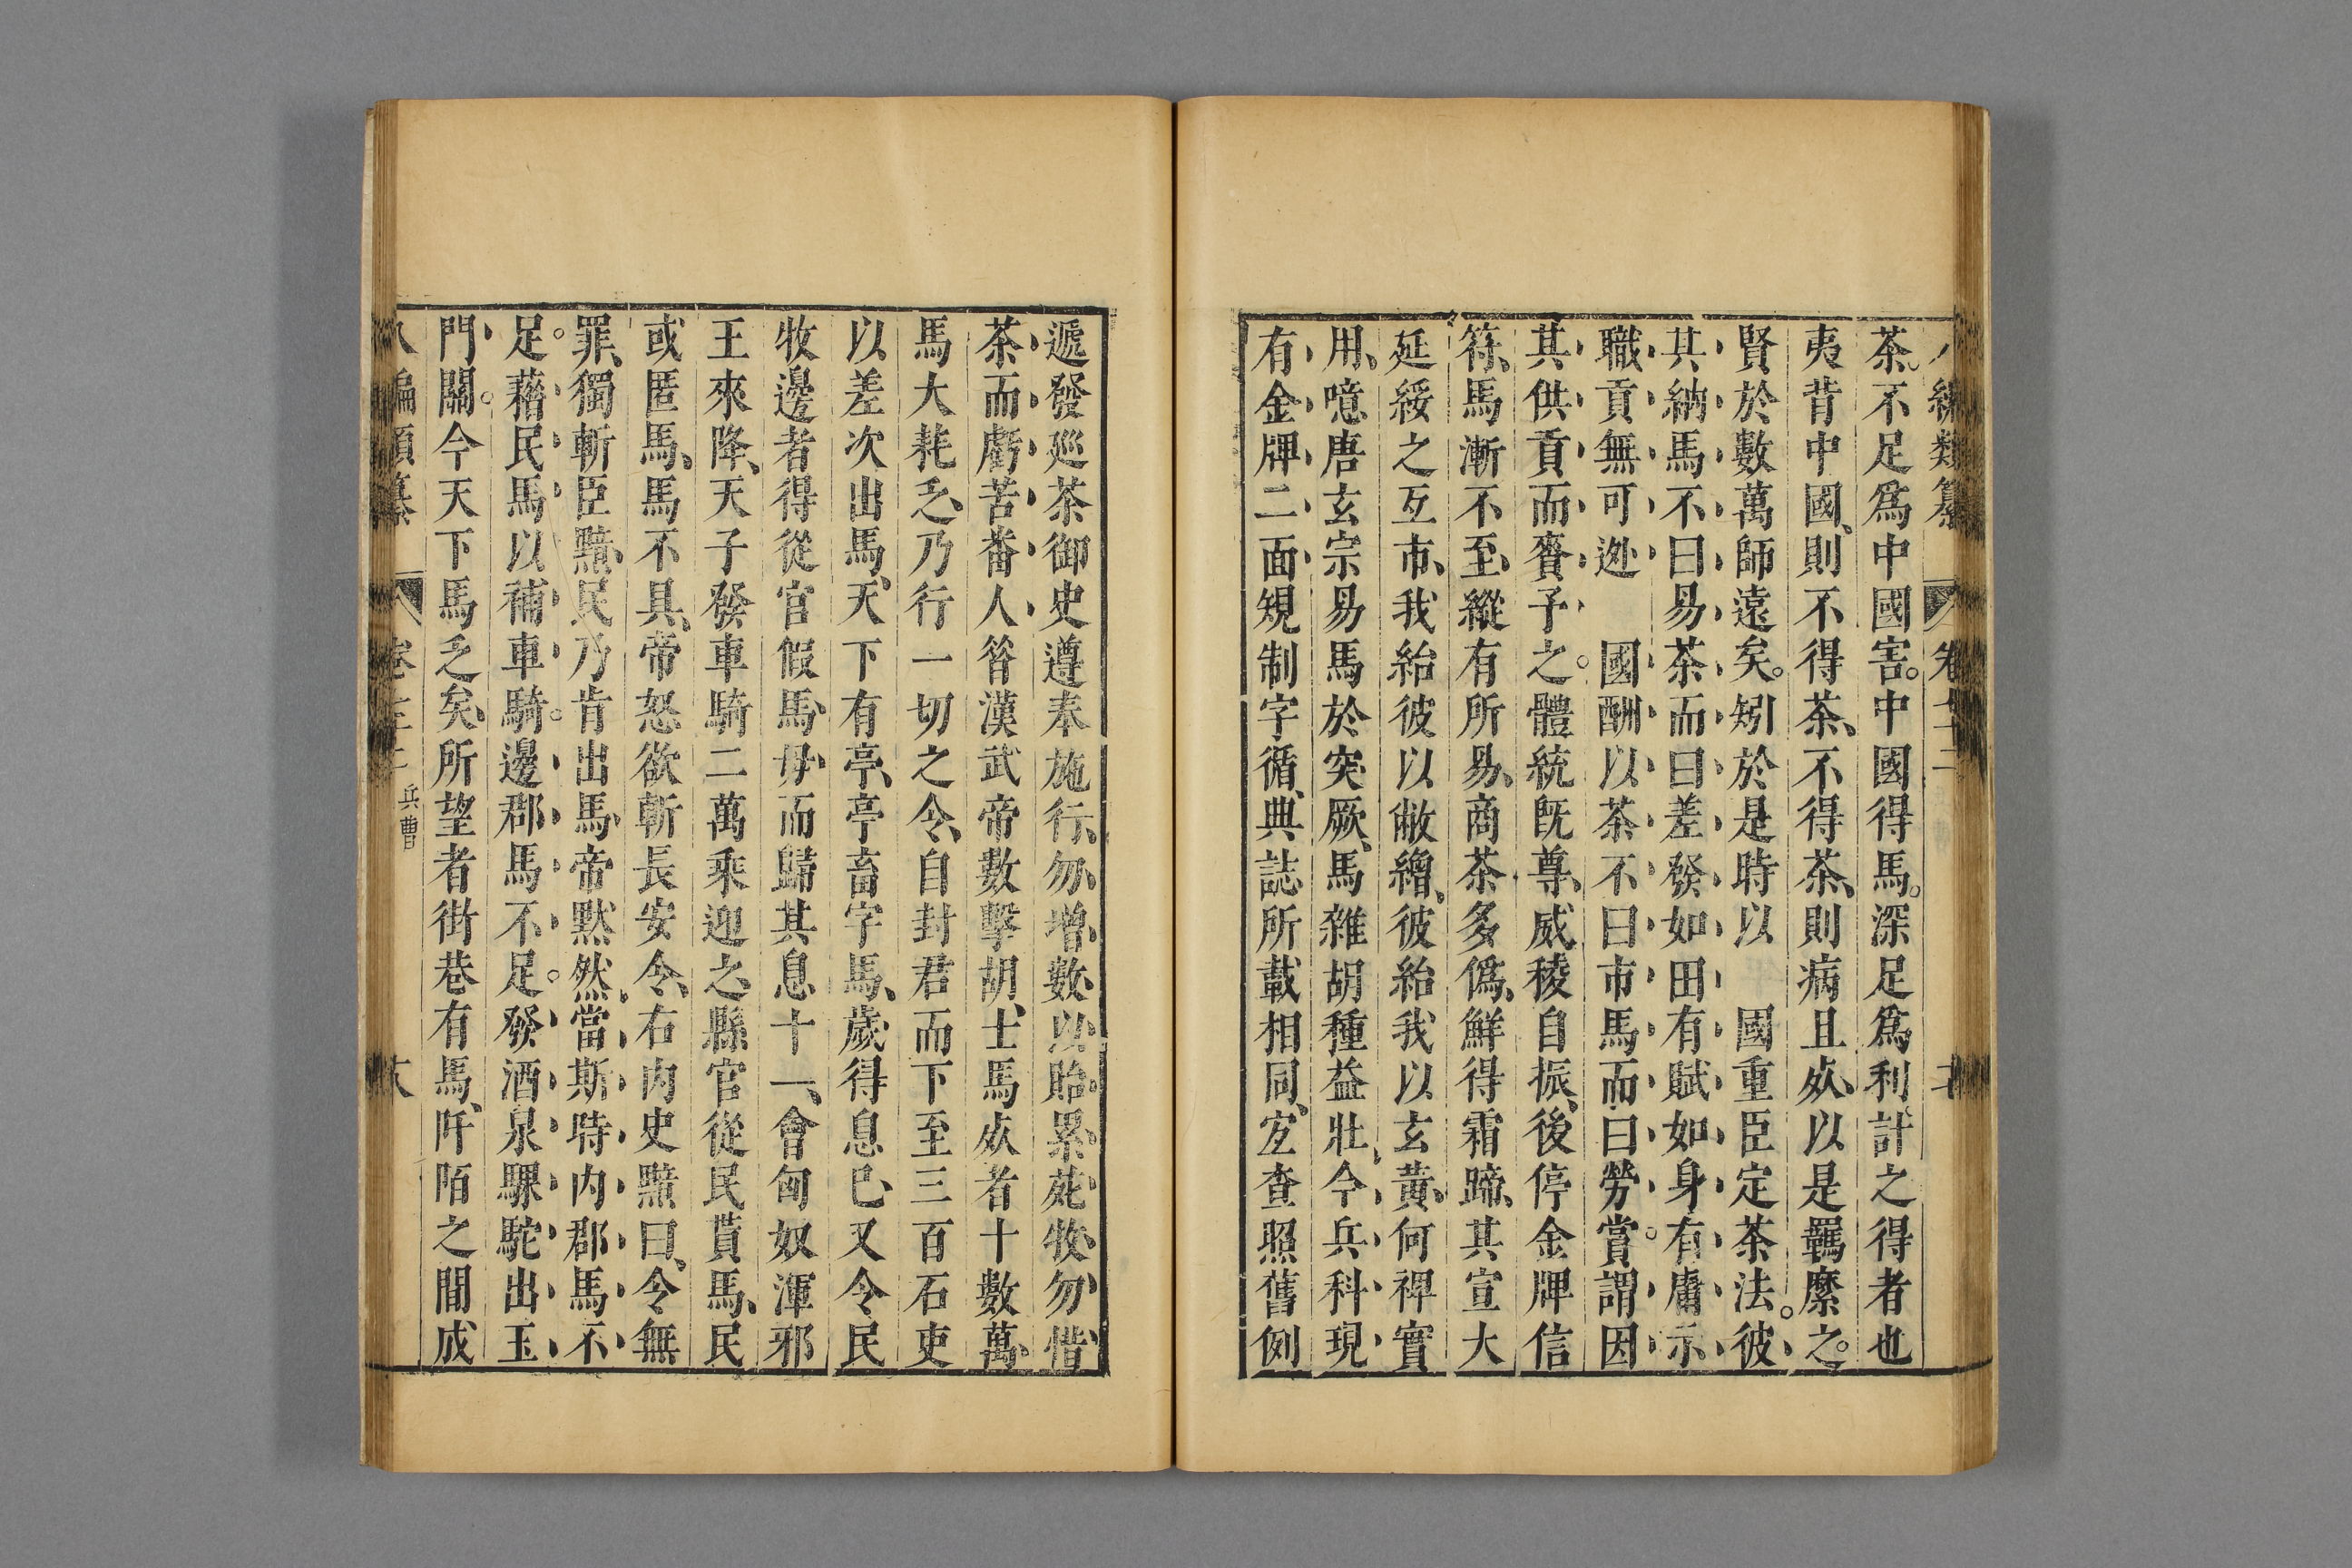 茶不足爲中國害。中國得馬。深足爲利計之得者也
夷背中國、則不得茶、不得茶、則病且死、以是羈縻之。
賢於數萬師遠矣。矧於是時以　國重臣定茶法。彼
其納馬不曰易茶而曰差發如田有賦如身有庸示
職貢無可逃　國酬以茶不曰市馬而曰勞賞。謂因
其供貢而賚予之。體統既尊、威稜自振、後停金牌信
符、馬漸不至、縱有所易、商茶多僞、鮮得霜蹄、其宣大
延綏之互市、我紿彼以敝繒、彼紿我以玄黄、何禆實
用、噫唐玄宗易馬於突厥、馬雜胡種益壯、今兵科現
有金牌二面規制字循、典誌所載相同、宐查照舊例
遞發廵茶御史遵奉施行、勿増數以貽累茺牧勿惜
茶而虧苦番人昝漢武帝數擊胡、士馬死者十數萬
馬大耗乏、乃行一切之令、自封君而下至三百石吏
以差次出馬、天下有亭、亭畜字馬、歲得息巳、又令民
牧邊者得從官假馬、毋而歸其息十一、會匈奴渾邪
王來降、天子發車騎二萬乘迎之、縣官從民貰馬、民
或匿馬、馬不具、帝怒欲斬長安令、右内史黯曰、令無
罪、獨斬臣黯、民乃肯出馬、帝默然、當斯時内郡馬不
足。藉民馬以補車騎。邊郡馬不足。發酒泉騾駝出玉
門關。今天下馬乏矣、所望者街巷有馬、阡陌之間成
兵曹